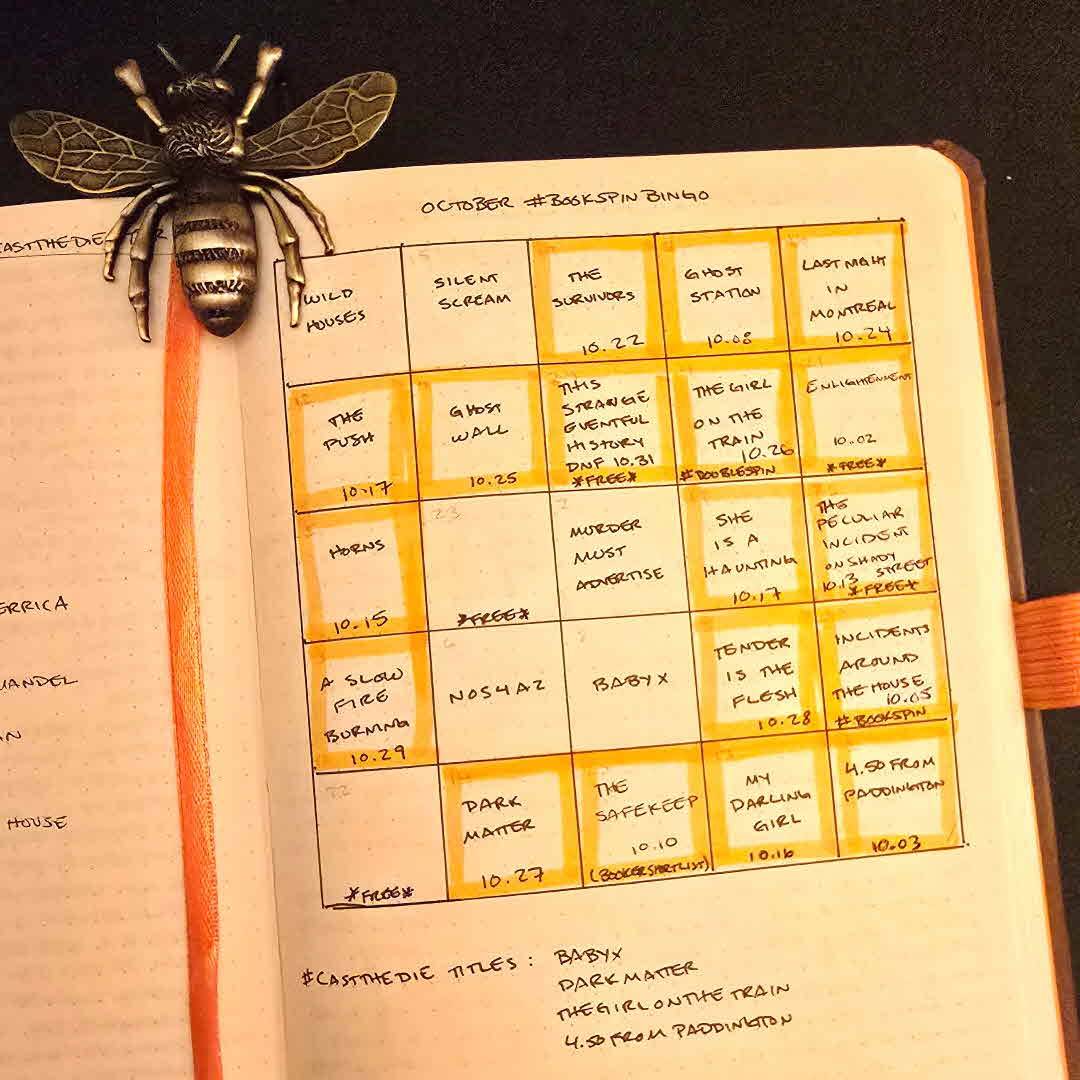 CASTTHEDIE
OCTOBER #BOOKSPINBINGO
WILD
HOUSES
SILENT
SCREAM
THE
SURVIVORS
10.22
GHOST
STATION
10.08
LAST NIGHT
IN
MONTREAL
10.24
THE
PUSH
10.17
GHOST
WALL
10.25
THIS
STRANGE
EVENTFUL
HISTORY
DNF 10.31
*FREE*
THE GIRL
ON THE
TRAIN
10.26
#DOUBLESPIN
ENLIGHTENMENT
10.02
*FREE*
HORNS
10.15
23
*FREE*
MURDER
MUST
ADVERTISE
SHE
IS A
HAUNTING
10.17
THE
PECULIAR
INCIDENT
ON SHADY
10.13 STREET
*FREE*
A SLOW
FIRE
BURNING
10.29
NOS4A2
BABY X
TENDER
IS THE
FLESH
10.28
INCIDENTS
AROUND
THE HOUSE
10.05
#BOOKSPIN
22
*FREE*
DARK
MATTER
10.27
THE
SAFEKEEP
10.10
(BOOKER SHORTLIST)
MY
DARLING
GIRL
10.16
4.50 FROM
PADDINGTON
10.03
ERRICA
MANDEL
AN
HOUSE
#CASTTHEDIE TITLES : BABYX
DARK MATTER
THE GIRL ON THE TRAIN
4.50 FROM PADDINGTON